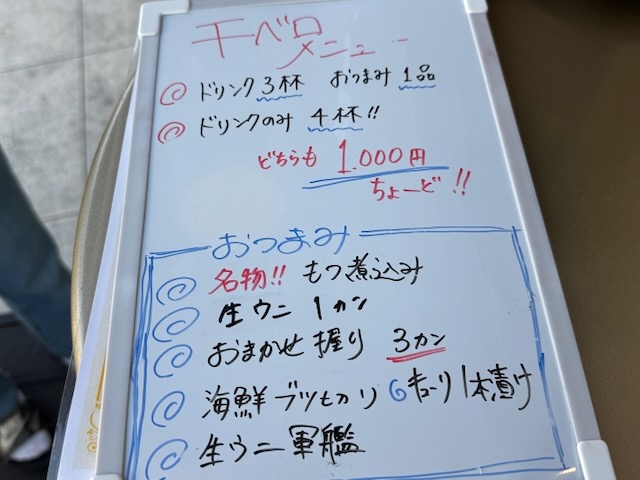 千ベロ
メニュー
ドリンク3杯 おつまみ1品
ドリンクのみ 4杯!!
どちらも 1.000円
ちょーど!!
おつまみ
名物!! もつ煮込み
生ウニ 1カン
おまかせ 握り 3カン
海鮮ブツもり キューリ1本漬け
生ウニ 軍艦